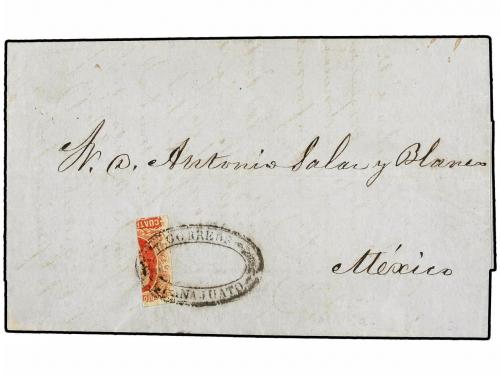 W. D. Antonio Salas y Blanco
CUAT
CORREOS
GUANAJUATO
México